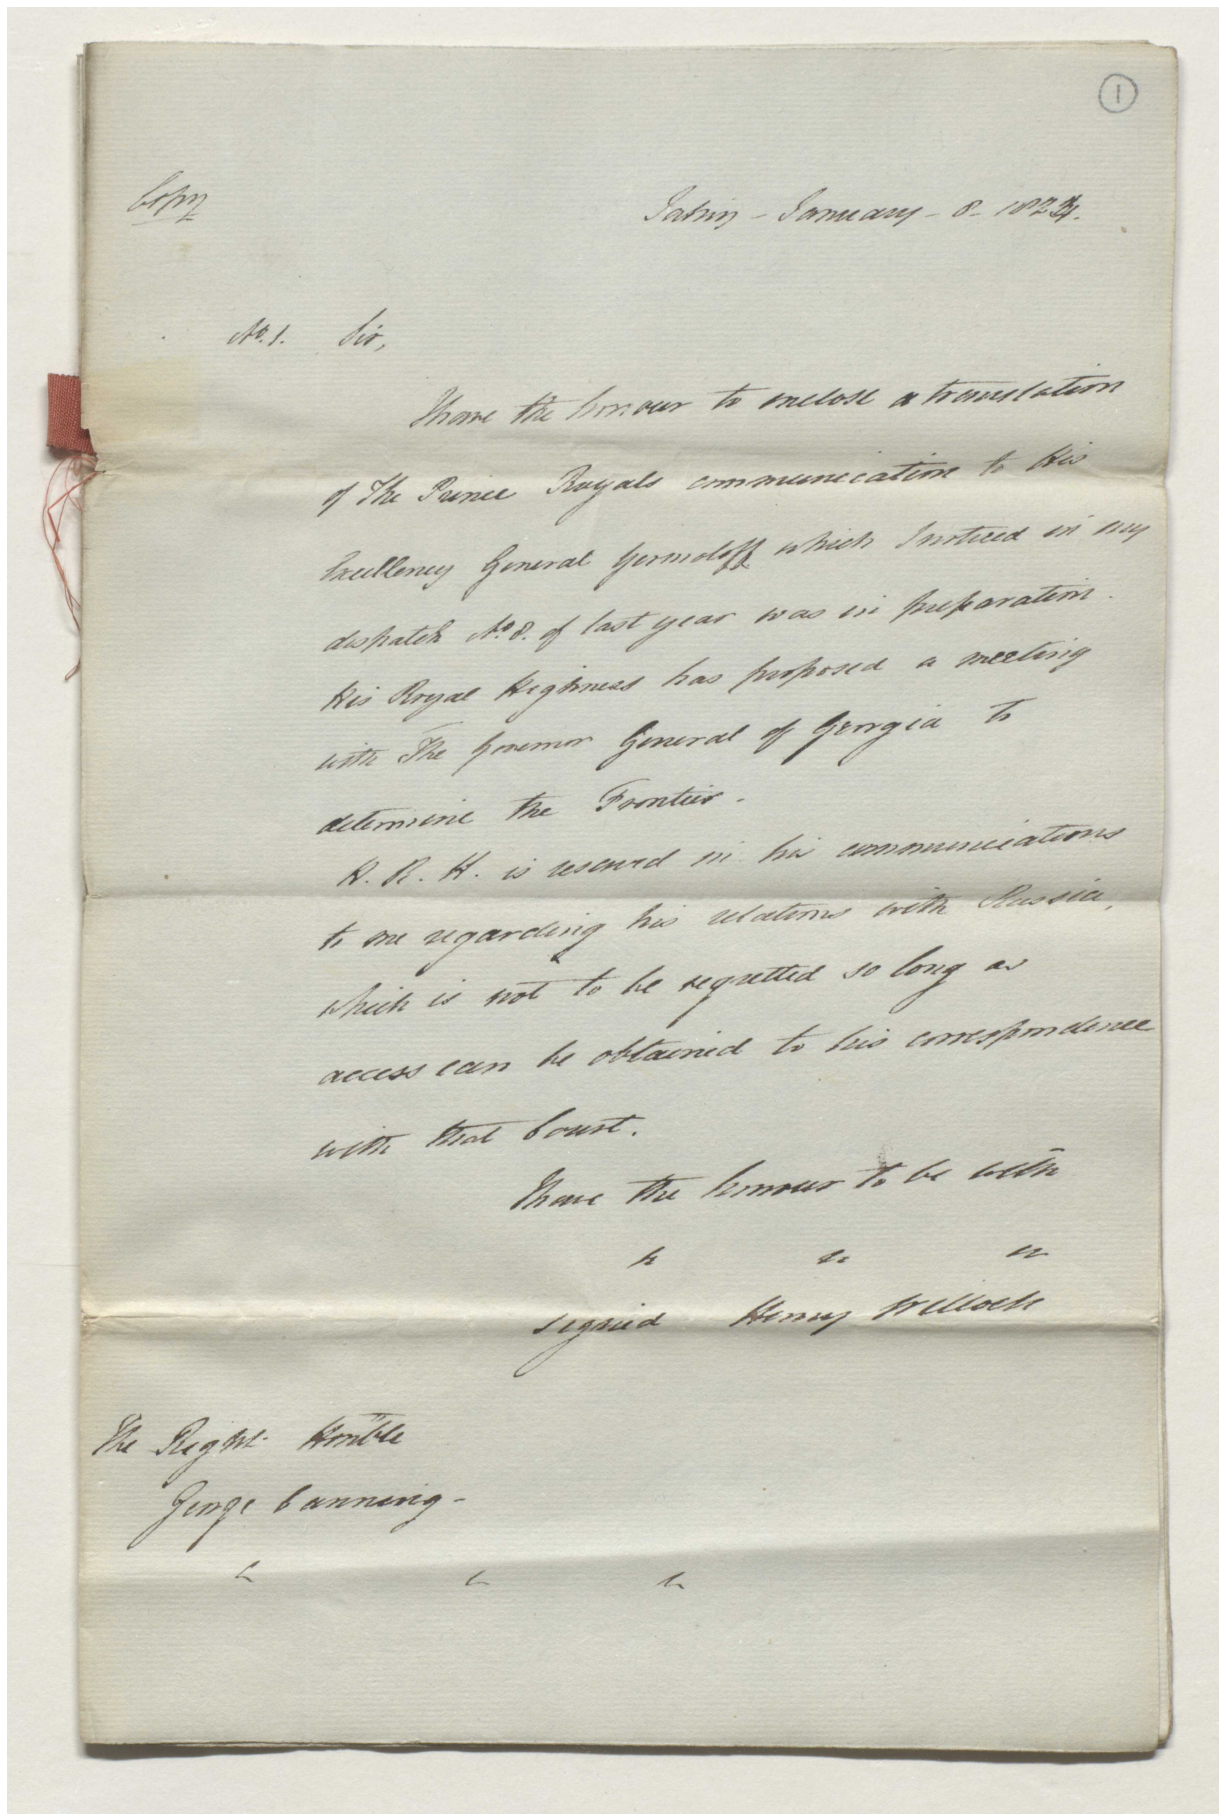 1
Copy
Tabriz - January - 8 - 1824.
No. 1. Sir,
I have the honour to enclose a translation
of The Prince Royals communication to His
Excellency General Yermoloff which I noticed in my
dispatch No. 8. of last year was in preparation.
His Royal Highness has proposed a meeting
with The Governor General of Georgia to
determine the Frontier.
H. R. H. is reserved in his communications
to me regarding his relations with Russia,
which is not to be regretted so long as
access can be obtained to his correspondence
with that Court.
I have the honour to be with
signed Henry Willock
The Right Honble
George Canning -